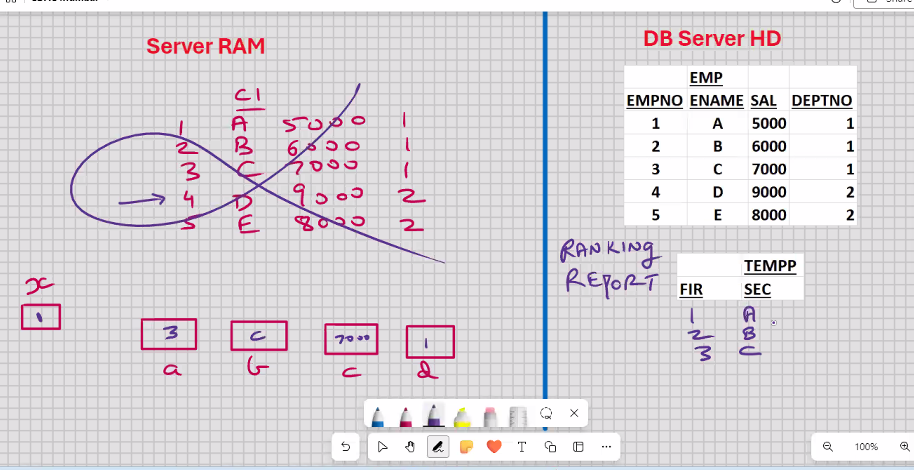 Server RAM
C1
1 A 5000 1
2 B 6000 1
3 C 7000 1
4 D 9000 2
5 E 8000 2
x
1
3 C 7000 1
a b c d
DB Server HD
EMP
EMPNO ENAME SAL DEPTNO
1 A 5000 1
2 B 6000 1
3 C 7000 1
4 D 9000 2
5 E 8000 2
RANKING
REPORT
TEMPP
FIR SEC
1 A
2 B
3 C
100%